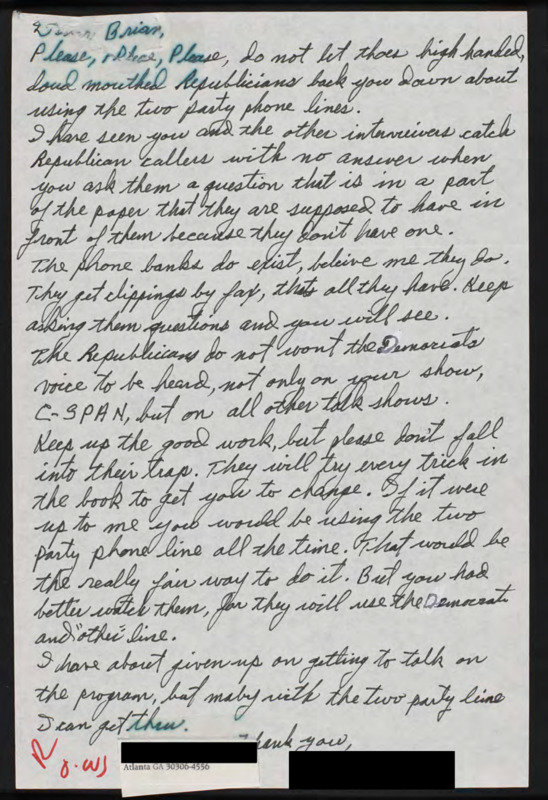 Dear Brian,
Please, please, Please, do not let thoes high handed,
loud mouthed Republicians back you down about
using the two party phone lines.
I have seen you and the other interviewers catch
Republican callers with no answer when
you ask them a question that is in a part
of the paper that they are supposed to have in
front of them because they don't have one.
The phone banks do exist, beleive me they do.
They get clippings by fax, thats all they have. Keep
asking them questions and you will see.
The Republicians do not wont the Democrats
voice to be heard, not only on your show,
C-SPAN, but on all other talk shows.
Keep up the good work, but please don't fall
into their trap. They will try every trick in
the book to get you to change. If it were
up to me you would be using the two
party phone line all the time. That would be
the really fair way to do it. But you had
better watch them, for they will use the Democrats
and "other" line.
I have about given up on getting to talk on
the program, but maby with the two party line
I can get thru.
Thank you,
Atlanta GA 30306-4556